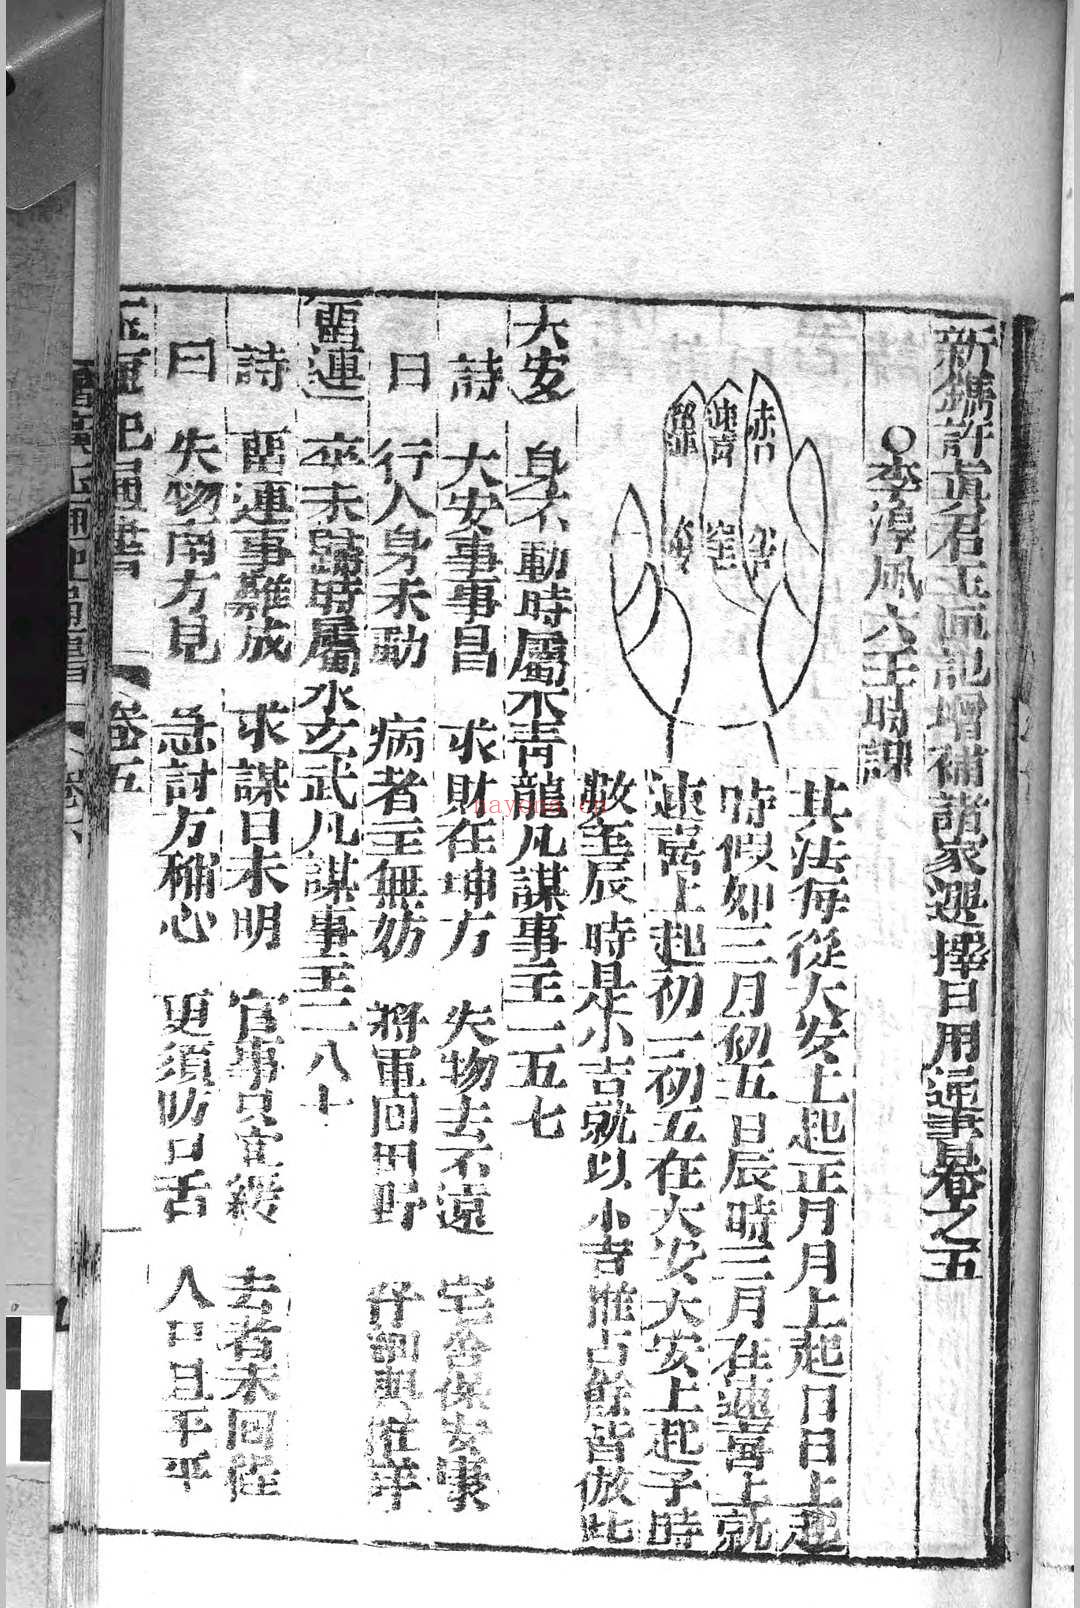 新鐫許真君玉匣記增補諸家選擇日用通書卷之五
○李淳風六壬時課
其法每從大安上起正月月上起日日上起
時假如三月初五日辰時三月在速喜上就
速喜上起初一初五在大安大安上起子時
數至辰時是小吉就以小吉推占餘皆倣此
赤口
速喜
留連
大安
空亡
小吉
大安 身不動時屬木青龍凡謀事主一五七
詩 大安事事昌 求財在坤方 失物去不遠 宅舍保安康
曰 行人身未動 病者主無妨 將軍回田野 仔細與推詳
畱連 卒未歸時屬水玄武凡謀事主二八十
詩 畱連事難成 求謀日未明 官事只宜緩 去者未回程
曰 失物南方見 急討方稱心 更須防口舌 人口且平平
玉匣記通書 卷五